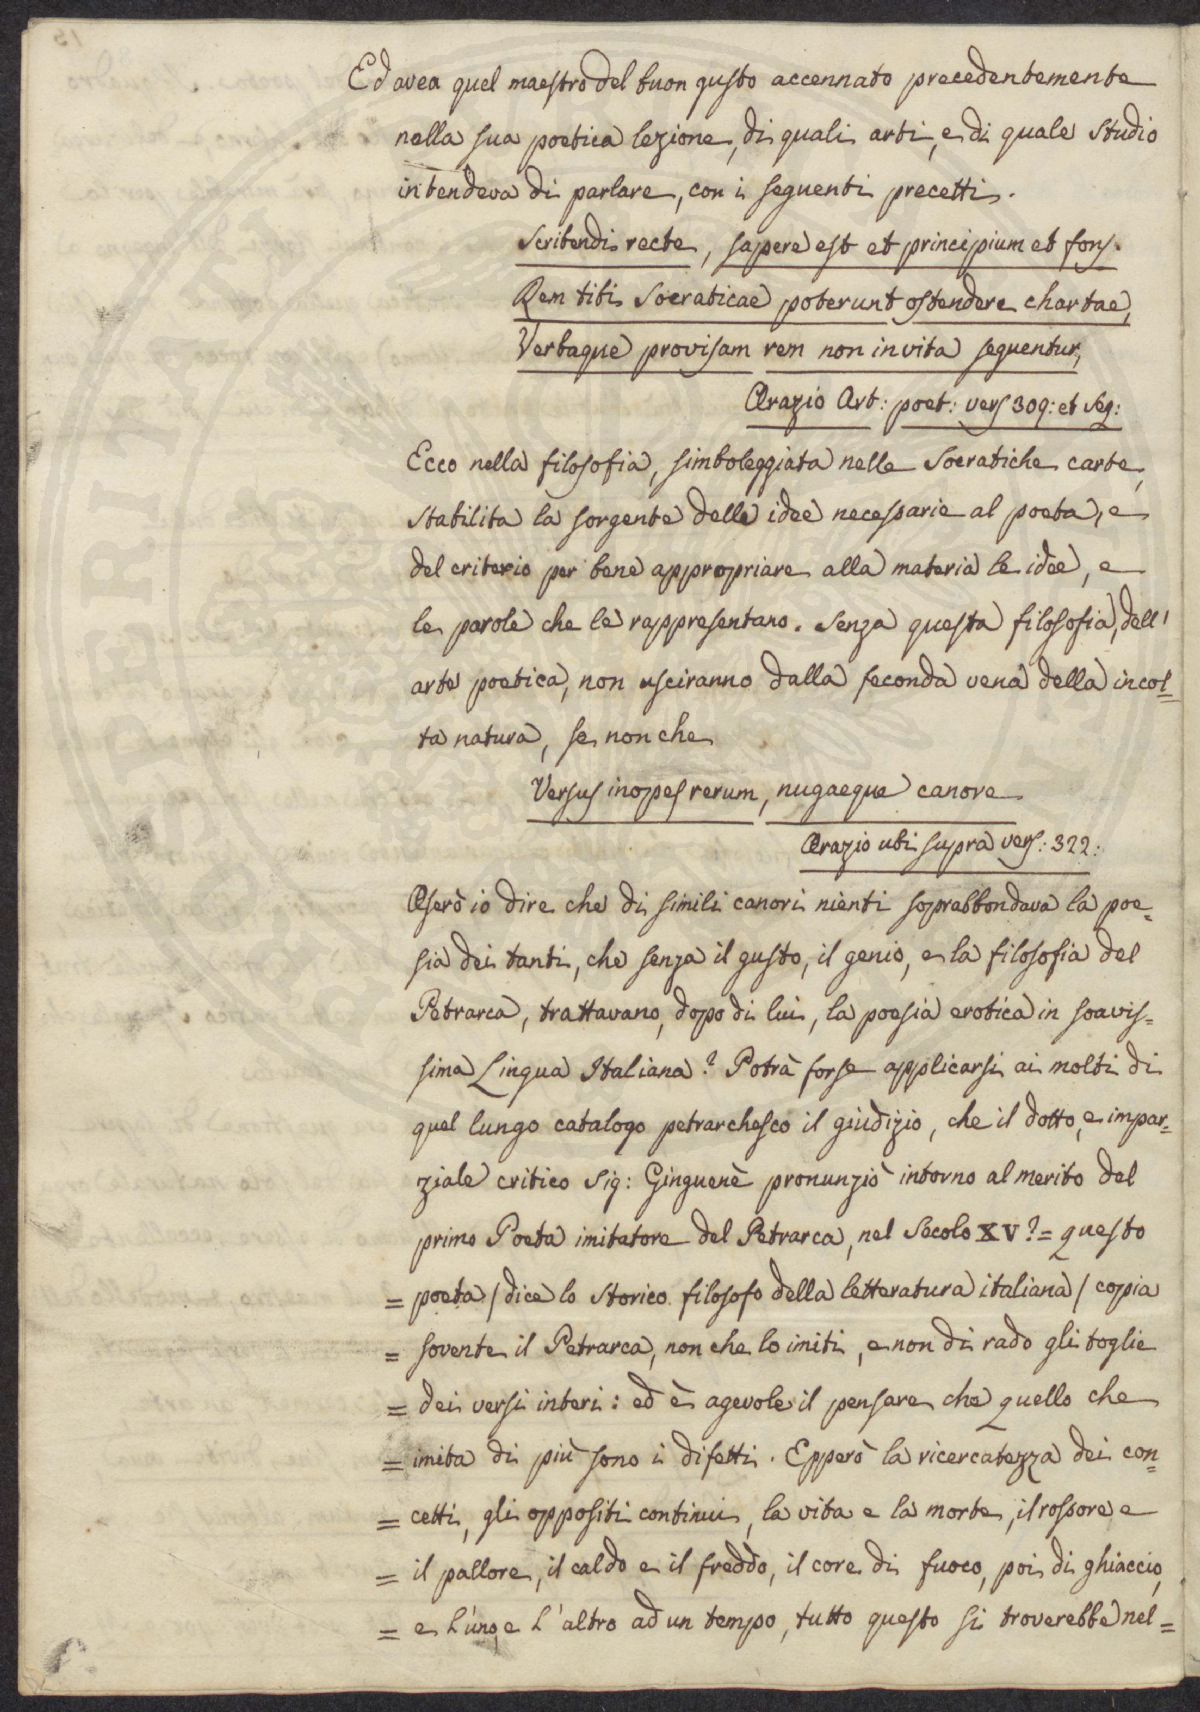 Ed avea quel maestro del buon gusto accennato precedentemente
nella sua poetica lezione, di quali arti, e di quale studio
intendeva di parlare, con i seguenti precetti.
Scribendi recte, sapere est et principium et fons.
Rem tibi Socraticae poterunt ostendere chartae,
Verbaque provisam rem non invita sequentur,
Orazio Art: poet: vers 309: et seq:
Ecco nella filosofia, simboleggiata nelle Socratiche carte,
stabilita la sorgente delle idee necessarie al poeta, e
del criterio per bene appropriare alla materia le idee, e
le parole che le rappresentano. Senza questa filosofia, dell'
arte poetica, non usciranno dalla feconda vena della incol=
ta natura, se non che
Versus inopes rerum, nugaeque canore
Orazio ubi supra vers: 322:
Oserò io dire che di simili canori nienti soprabbondava la poe=
sia dei tanti, che senza il gusto, il genio, e la filosofia del
Petrarca, trattavano, dopo di lui, la poesia erotica in soavis=
sima Lingua Italiana? Potrà forse applicarsi ai molti di
quel lungo catalogo petrarchesco il giudizio, che il dotto, e impar=
ziale critico Sig: Ginguenè pronunziò intorno al merito del
primo Poeta imitatore del Petrarca, nel Secolo XV? = questo
= poeta / dice lo storico filosofo della letteratura italiana / copia
= sovente il Petrarca, non che lo imiti, e non di rado gli toglie
= dei versi interi: ed è agevole il pensare che quello che
= imita di più sono i difetti. Epperò la ricercatezza dei con=
= cetti, gli oppositi continui, la vita e la morte, il rossore e
= il pallore, il caldo e il freddo, il core di fuoco, poi di ghiaccio,
= e l'uno, e l'altro ad un tempo, tutto questo si troverebbe nel=